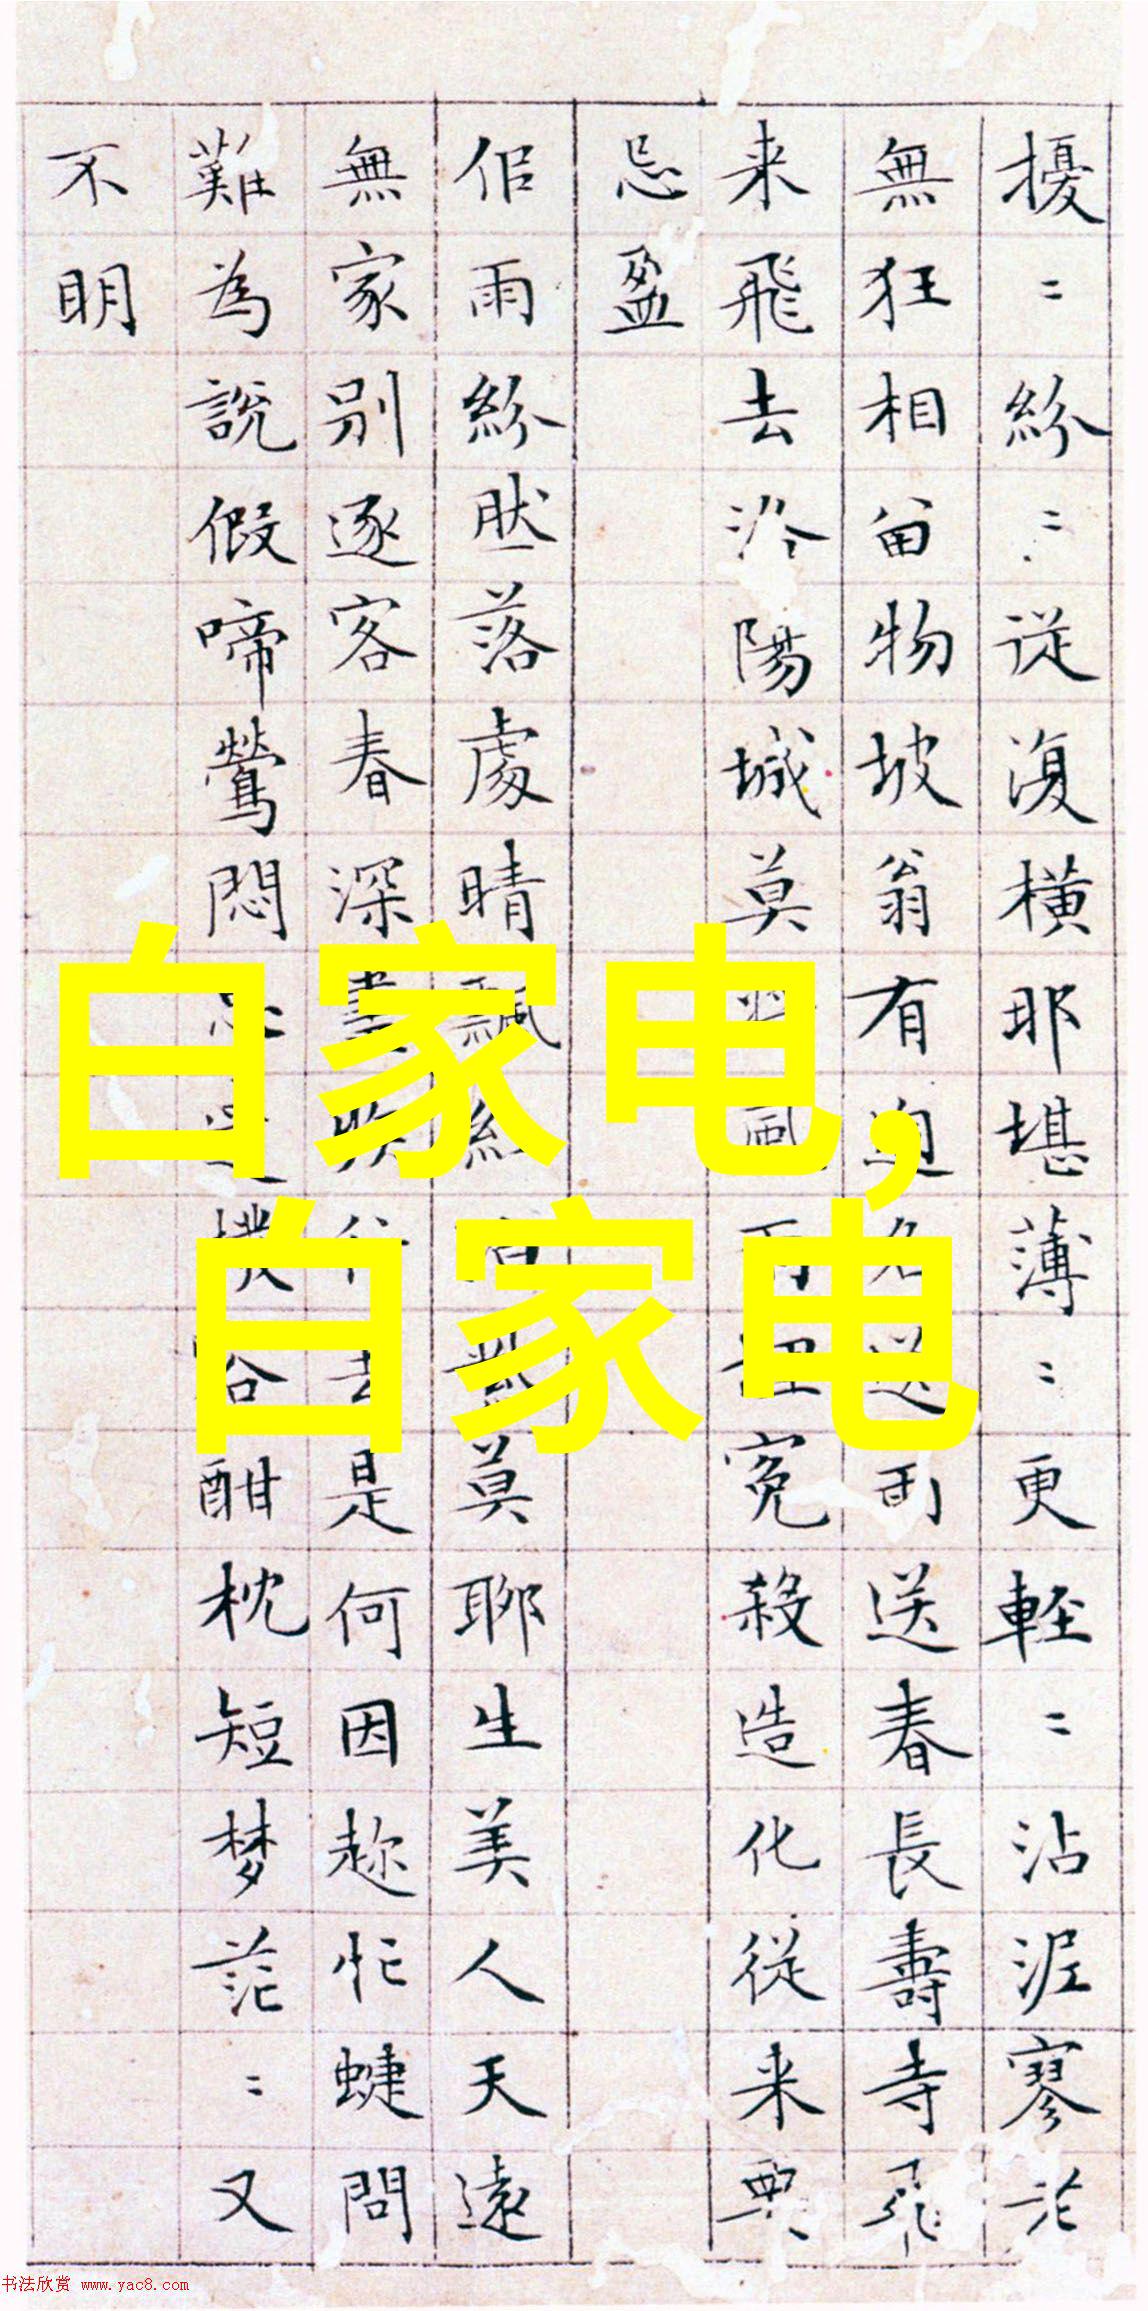 擾〻紛〻従復横耶堪薄〻更輕〻沾泥寥
無狂相留物坡翁有送春長壽寺飛
来飛去洛陽城莫風雨冤殺造化從来
忌盈
但雨紛肰落處晴飄紅莫聊生美人天遠
無家別逐客春深是何因趂忙蜨問
難為說假啼鶯悶酣枕短梦茫〻又
不明
白家电,
白家电
书法欣赏 www.yac8.com